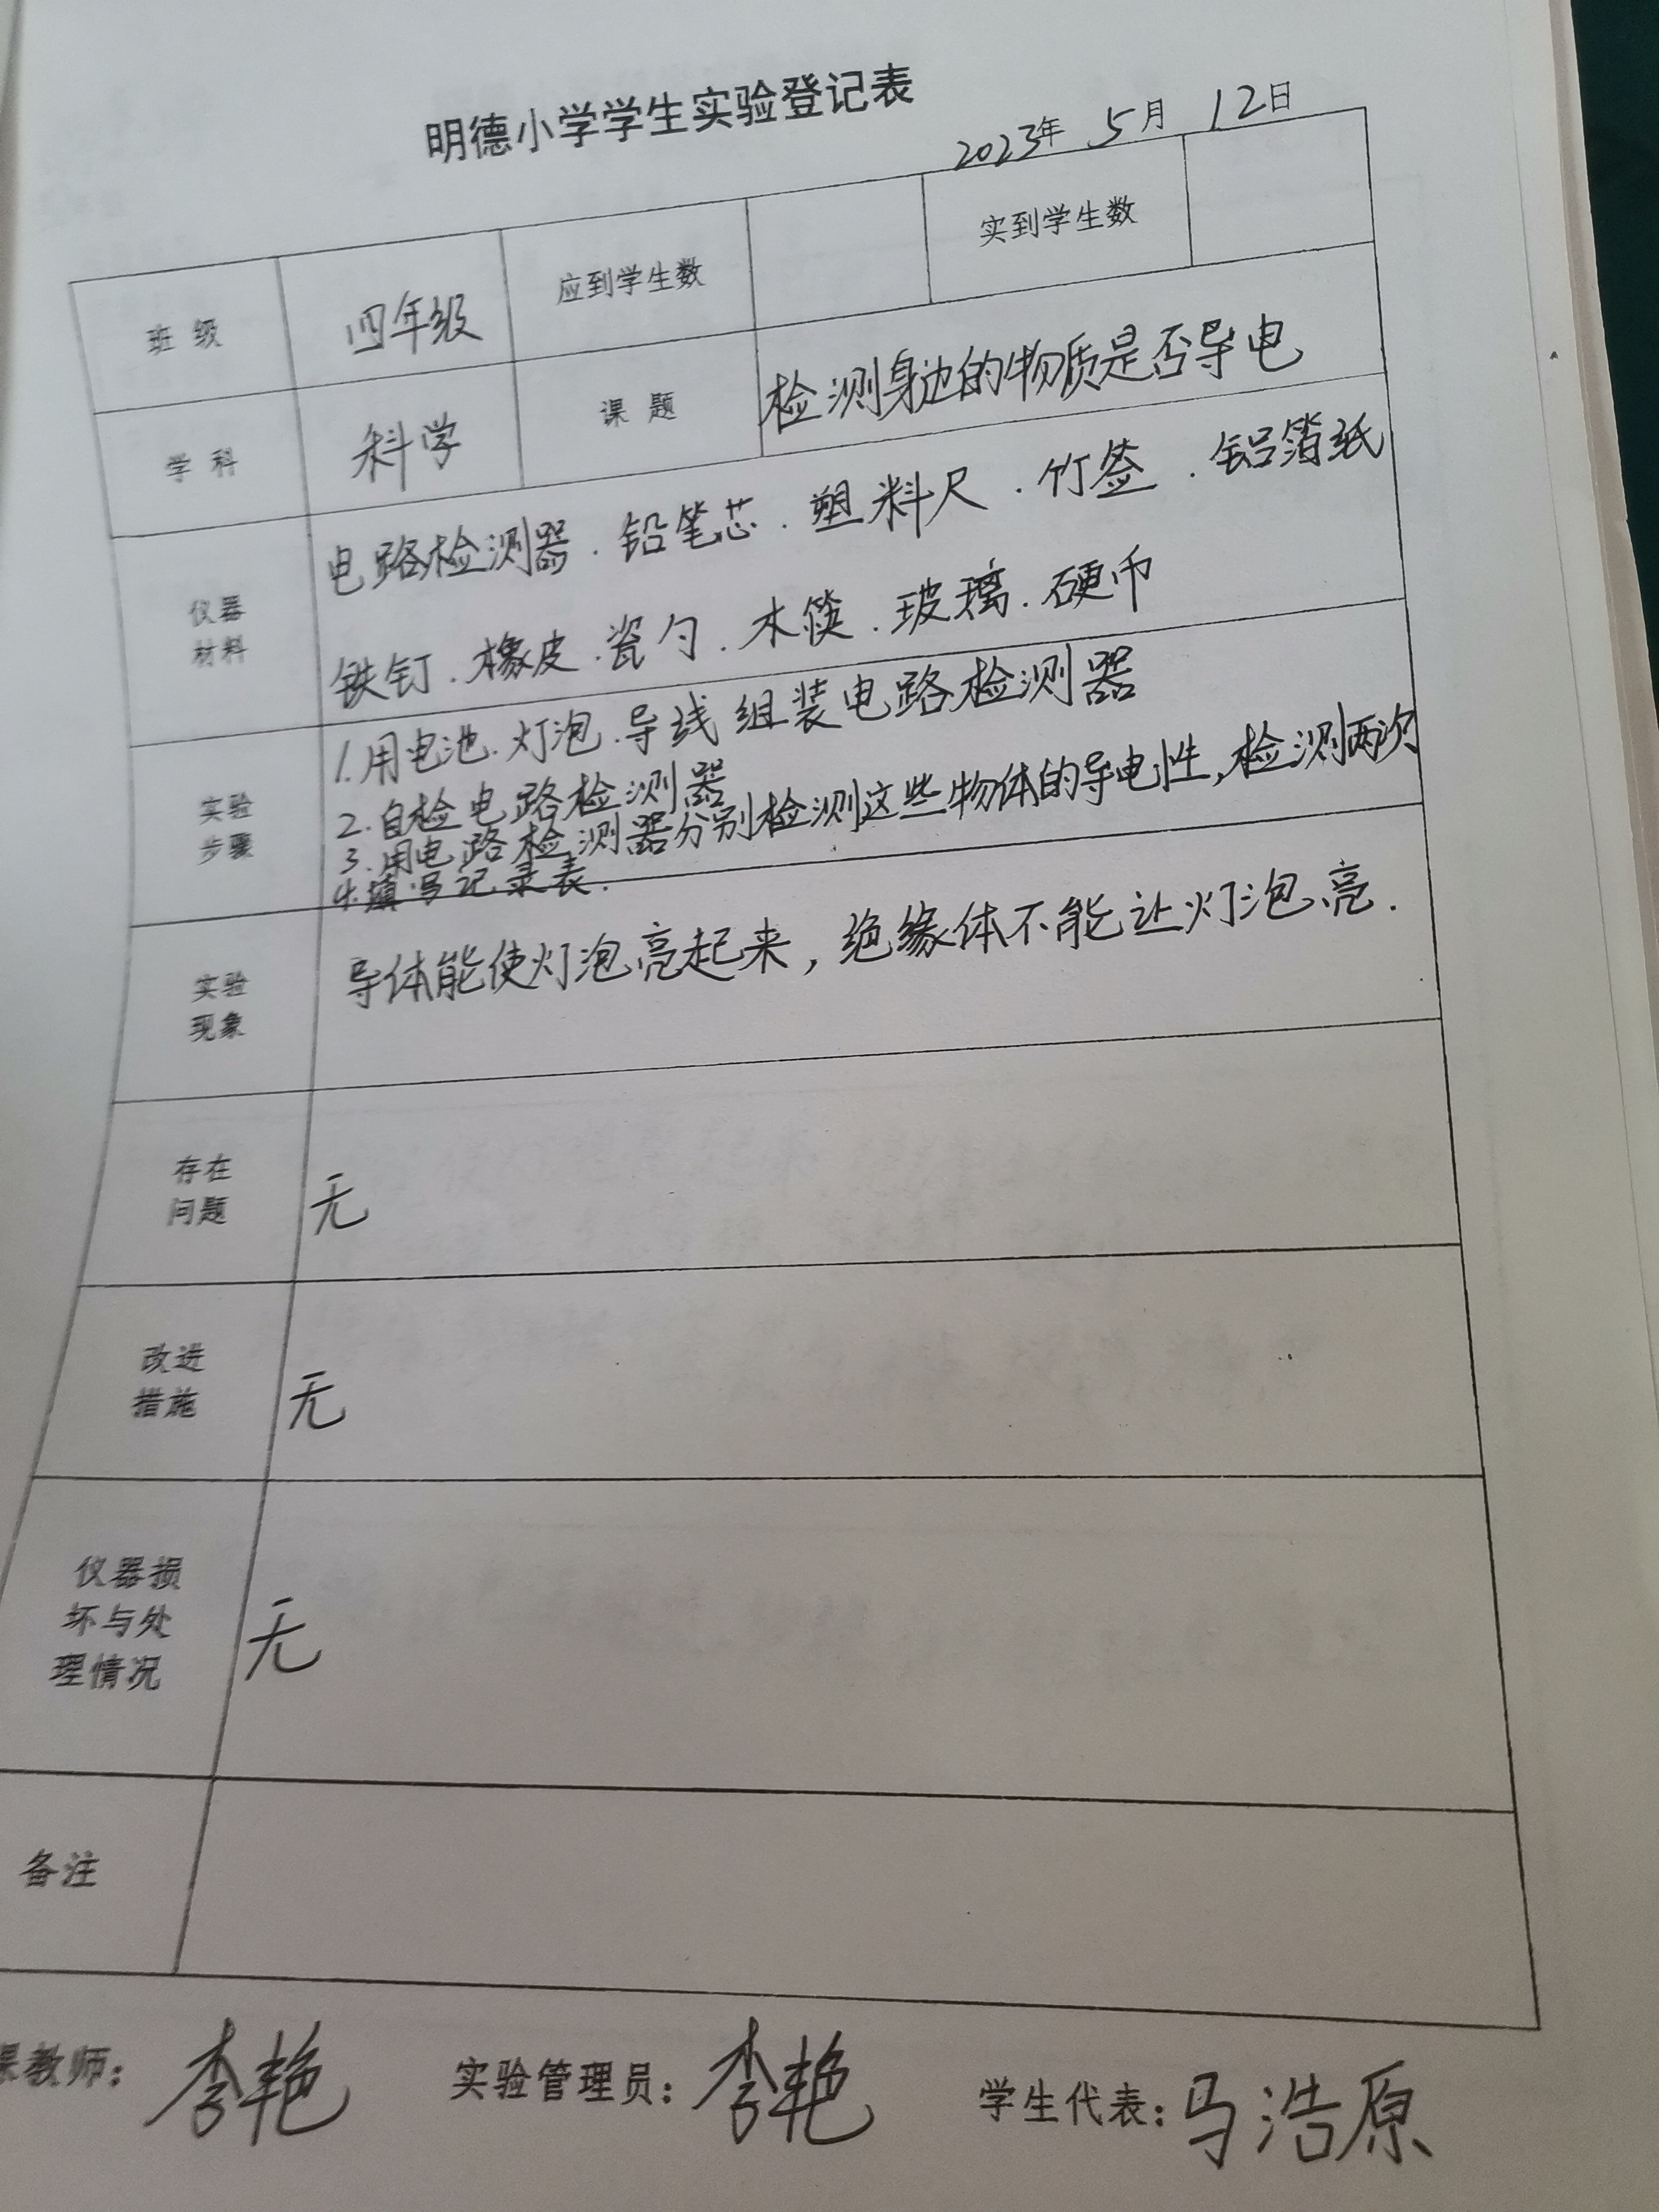 明德小学学生实验登记表
2023年 5月 12日
班 级 四年级 应到学生数 实到学生数
学 科 科学 课 题 检测身边的物质是否导电
仪器
材料
电路检测器.铅笔芯.塑料尺.竹签.铝箔纸
铁钉.橡皮.瓷勺.木筷.玻璃.硬币
实验
步骤
1.用电池.灯泡.导线组装电路检测器
2.自检电路检测器
3.用电路检测器分别检测这些物体的导电性,检测两次
4.填写记录表.
实验
现象
导体能使灯泡亮起来,绝缘体不能让灯泡亮.
存在
问题
无
改进
措施
无
仪器损
坏与处
理情况
无
备注
课教师: 李艳 实验管理员: 李艳 学生代表: 马浩原